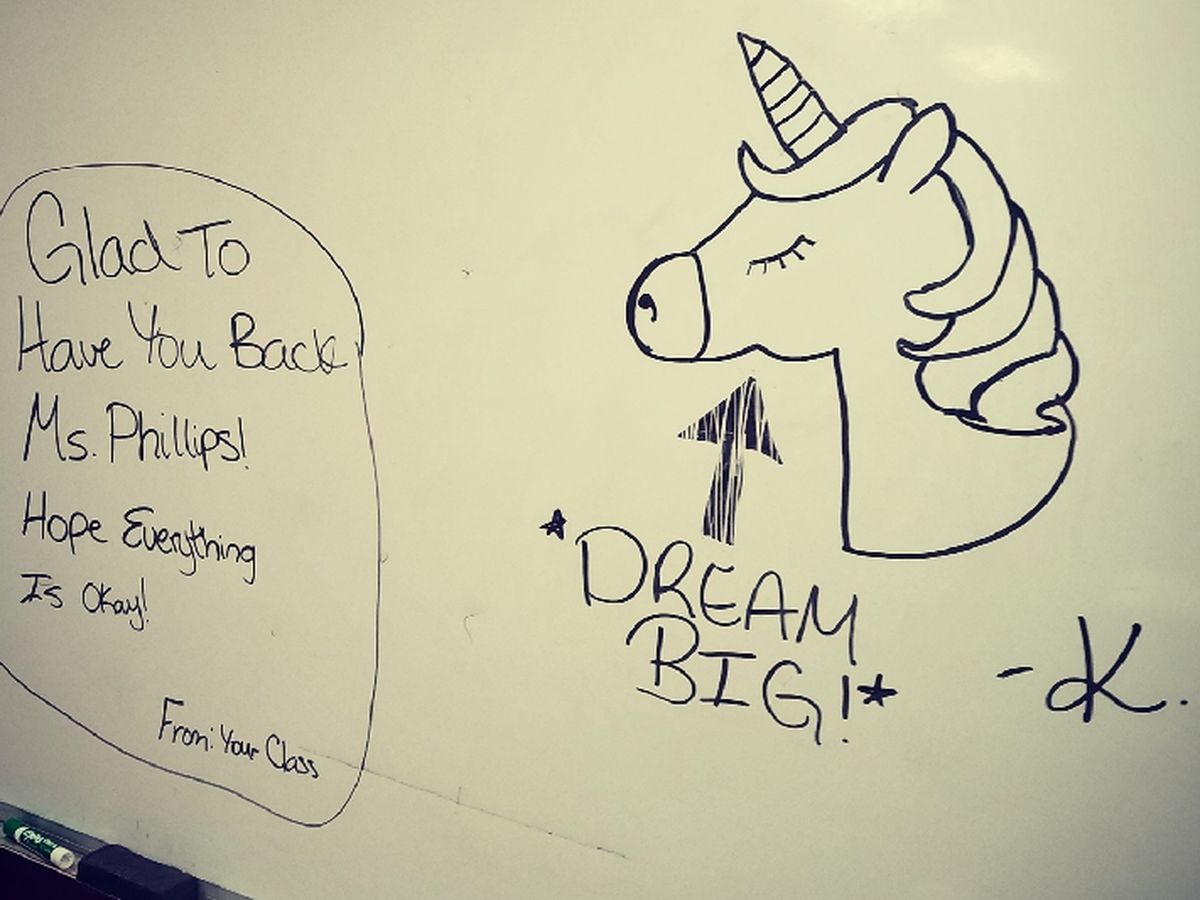 Glad To
Have You Back
Ms. Phillips!
Hope Everything
Is Okay!
From: Your Class
*DREAM
BIG!*
-K.